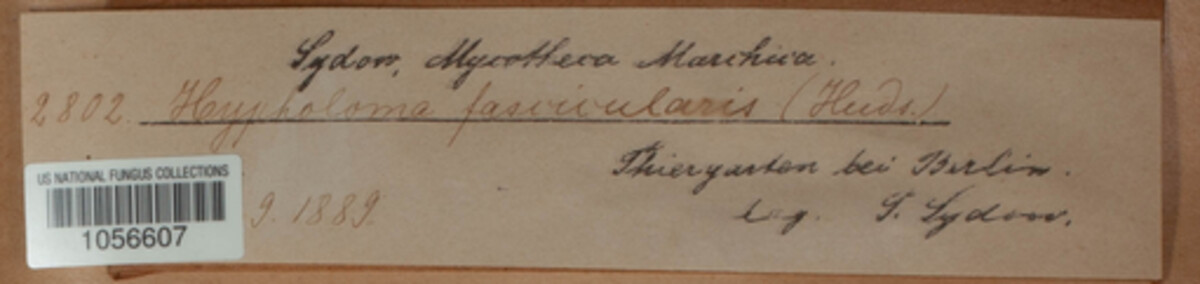 Sydow, Mycotheca Marchica.
2802. Hypholoma fascicularis (Huds.)
Thiergarten bei Berlin.
US NATIONAL FUNGUS COLLECTIONS
9. 1889.
leg. P. Sydow.
1056607